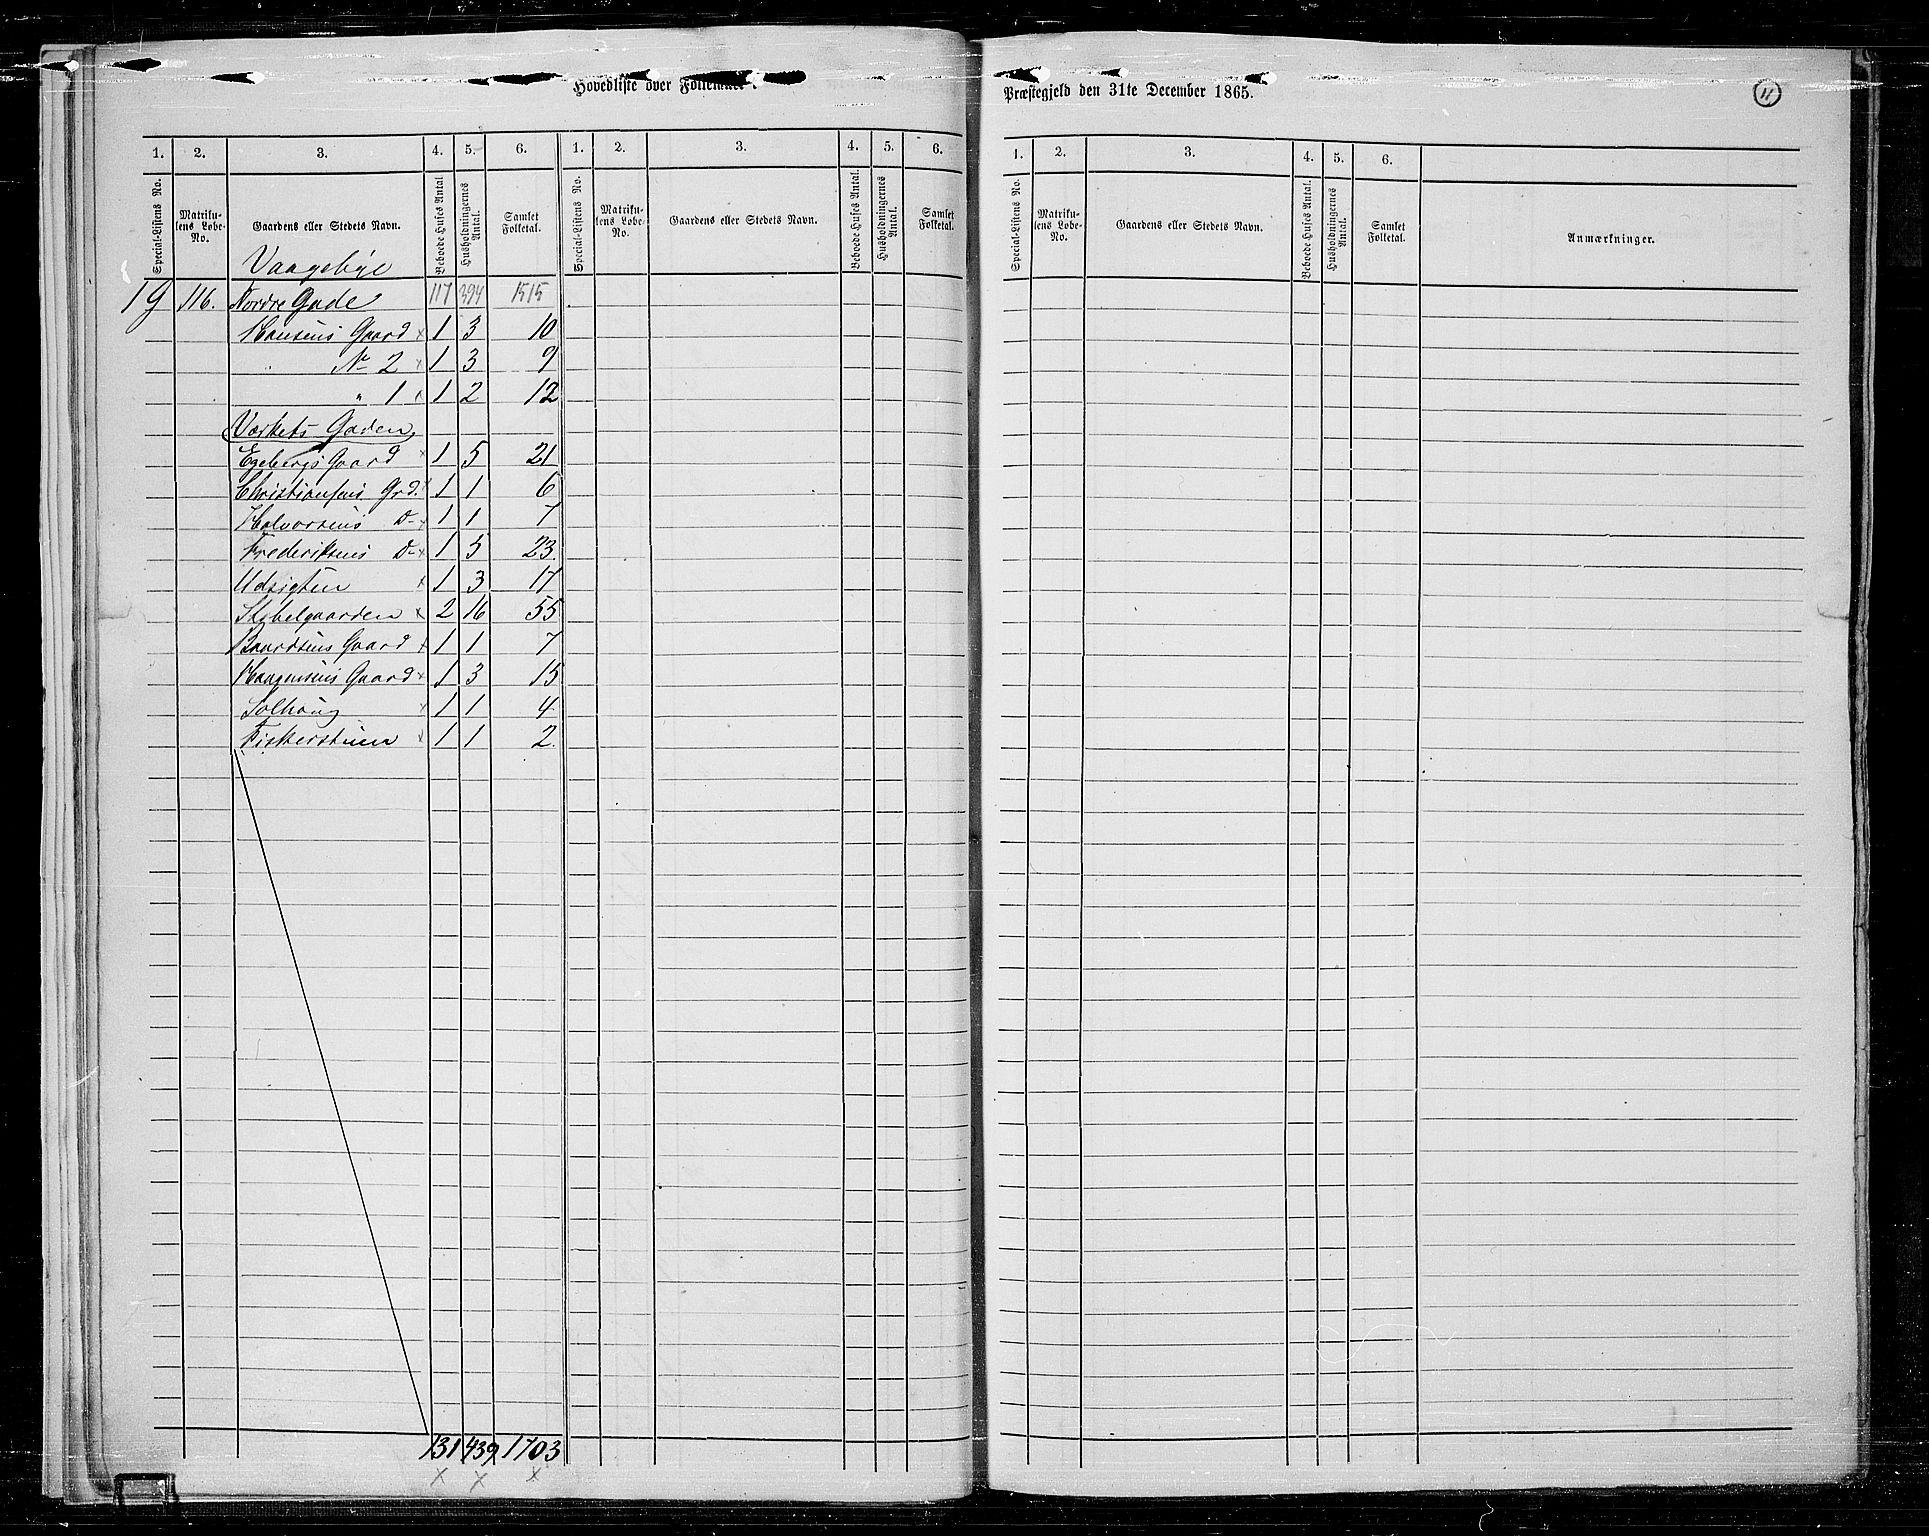 Hovedliste over Folkemængden
Præstegjeld den 31te December 1865.
11
1. 2. 3. 4. 5. 6. 1. 2. 3. 4. 5. 6.
1. 2. 3. 4. 5. 6.
Special-Listens No. Matrikulens Løbe-No. Gaardens eller Stedets Navn. Beboede Huses Antal. Husholdningernes Antal. Samlet Folketal. Special-Listens No. Matrikulens Løbe-No. Gaardens eller Stedets Navn. Beboede Huses Antal. Husholdningernes Antal. Samlet Folketal.
Special-Listens No. Matrikulens Løbe-No. Gaardens eller Stedets Navn. Beboede Huses Antal. Husholdningernes Antal. Samlet Folketal. Anmærkninger.
Vaagebye
19 116. Nordre Gade 117 394 1515
Hansens Gaard x 1 3 10
" No 2 x 1 3 9
" 1 x 1 2 12
Værkets Gaden
Egebergs Gaard x 1 5 21
Christiansens Grd. x 1 1 6
Halvorsens D- x 1 1 7
Frederiksens D- x 1 5 23
Udsigten x 1 3 17
Stabelgaarden x 2 16 55
Baardsens Gaard x 1 1 7
Haagensens Gaard x 1 3 15
Solhaug x 1 1 4
Fiskerstuen x 1 1 2.
131 439 1703
x x x